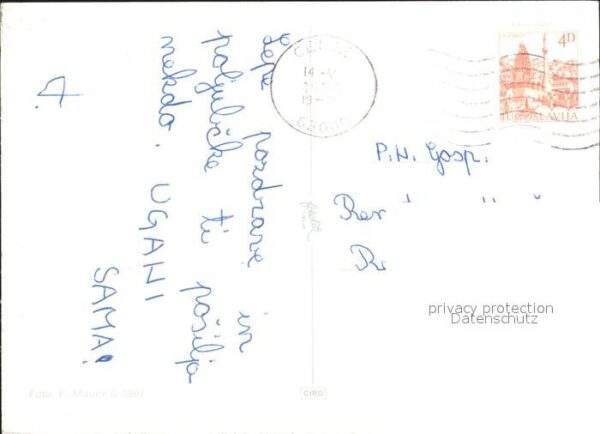 Lepe pozdrave in
poljubčke ti pošilja
nekdo. UGANI
SAMA!
CELJE
14. V
63000
4D
JUGOSLAVIJA
P.N. Gosp.
privacy protection
Datenschutz
Foto: F. Mauer
CIRO